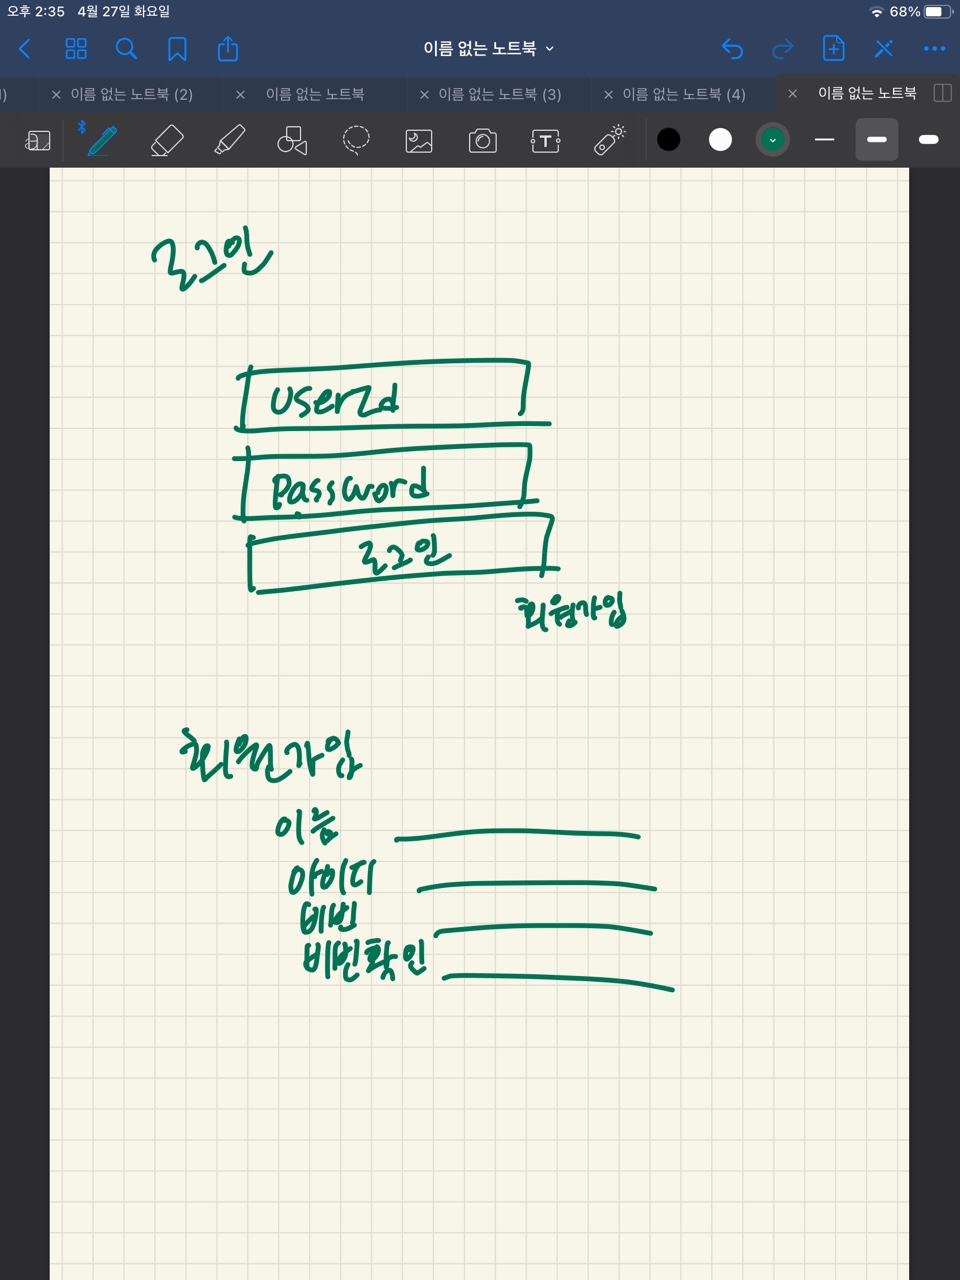 오후 2:35 4월 27일 화요일 68%
이름 없는 노트북
이름 없는 노트북 (2) 이름 없는 노트북 이름 없는 노트북 (3) 이름 없는 노트북 (4) 이름 없는 노트북
로그인
UserId
Password
로그인
회원가입
회원가입
이름
아이디
비번
비번확인